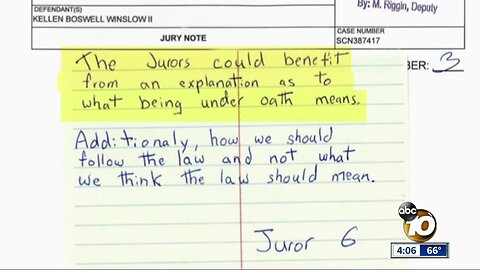 DEFENDANT(S)
KELLEN BOSWELL WINSLOW II
By: M. Riggin, Deputy
JURY NOTE
CASE NUMBER
SCN387417
BER: 3
The Jurors could benefit
from an explanation as to
what being under oath means.
Additionaly, how we should
follow the law and not what
we think the law should mean.
Juror 6
abc
10
4:06 66°